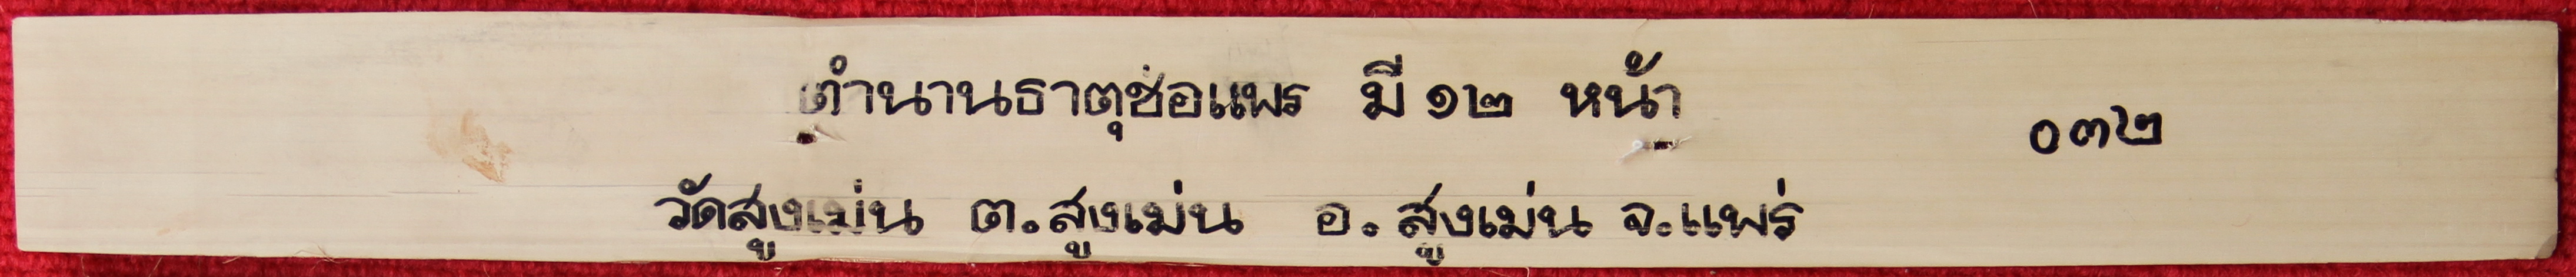 ตำนานธาตุช่อแพร มี ๑๒ หน้า
๐๓๒
วัดสูงเม่น ต.สูงเม่น อ. สูงเม่น จ.แพร่